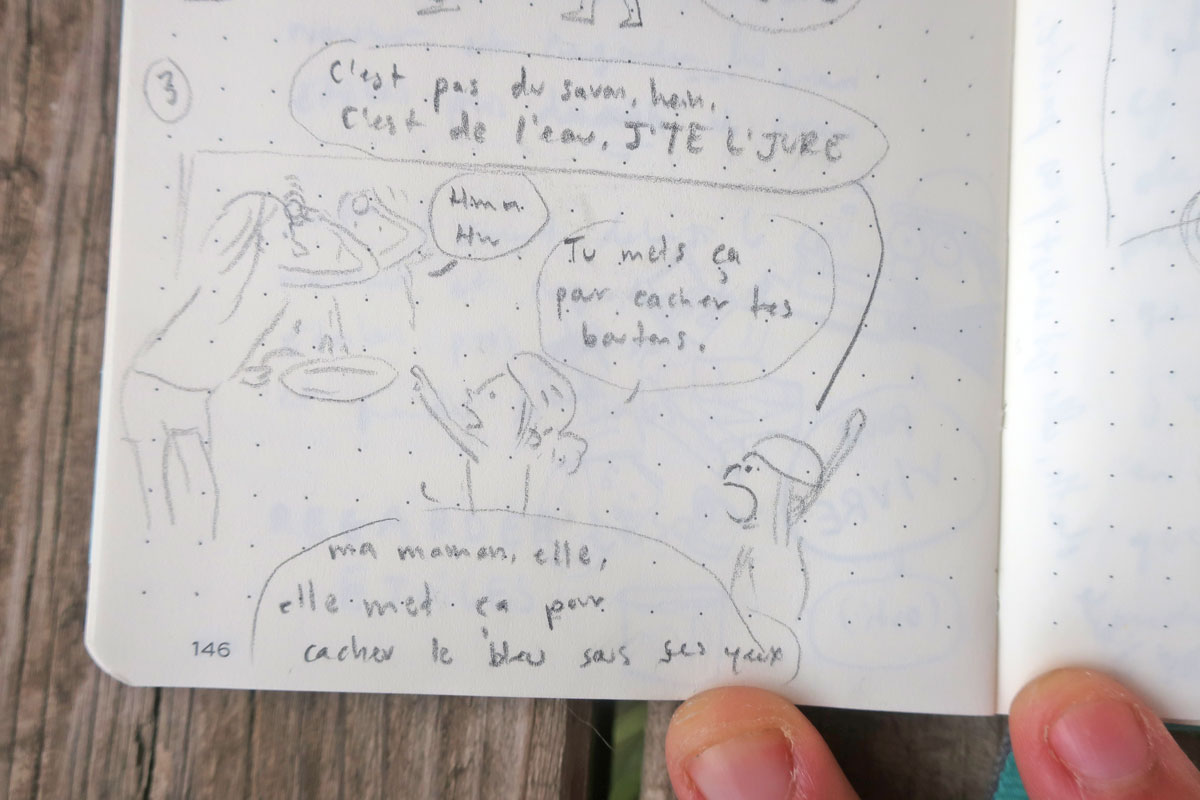 3
C'est pas du savon, hein.
C'est de l'eau, J'TE L'JURE
Hmm
Hm
Tu mets ça
pour cacher tes
boutons.
ma maman, elle,
elle met ça pour
cacher le bleu sous ses yeux
146
VIVRE